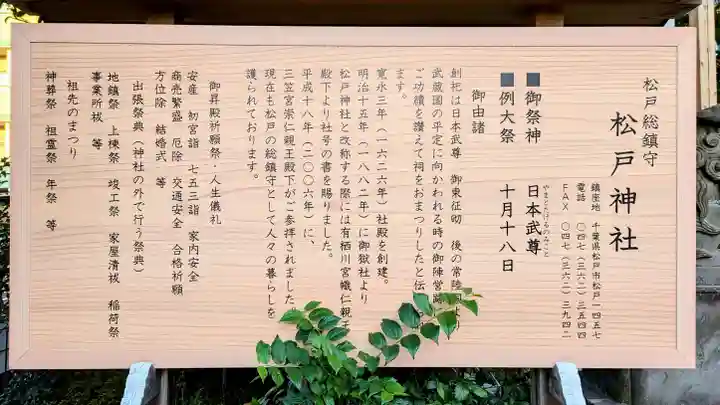 松戸総鎮守
松戸神社
鎮座地 千葉県松戸市松戸一四五七
電話 〇四七(三六二)三五四四
FAX 〇四七(三六二)三九四二
■御祭神 日本武尊
やまとたけるのみこと
■例大祭 十月十八日
御由諸
創祀は日本武尊 御東征砌 後の常陸国より
武蔵国の平定に向かわれる時の御陣営跡
ご功績を讃えて祠をおまつりしたと伝
ます。
寛永三年(一六二六年)社殿を創建。
明治十五年(一八八二年)に御嶽社より
松戸神社と改称する際には有栖川宮幟仁親王
殿下より社号の書を賜りました。
平成十八年(二〇〇六年)に、
三笠宮崇仁親王殿下がご参拝されました
現在も松戸の総鎮守として人々の暮らしを
護られております。
御昇殿祈願祭・人生儀礼
安産 初宮詣 七五三詣 家内安全
商売繁盛 厄除 交通安全 合格祈願
方位除 結婚式 等
出張祭典(神社の外で行う祭典)
地鎮祭 上棟祭 竣工祭 家屋清祓 稲荷祭
事業所祓 等
祖先のまつり
神葬祭 祖霊祭 年祭 等